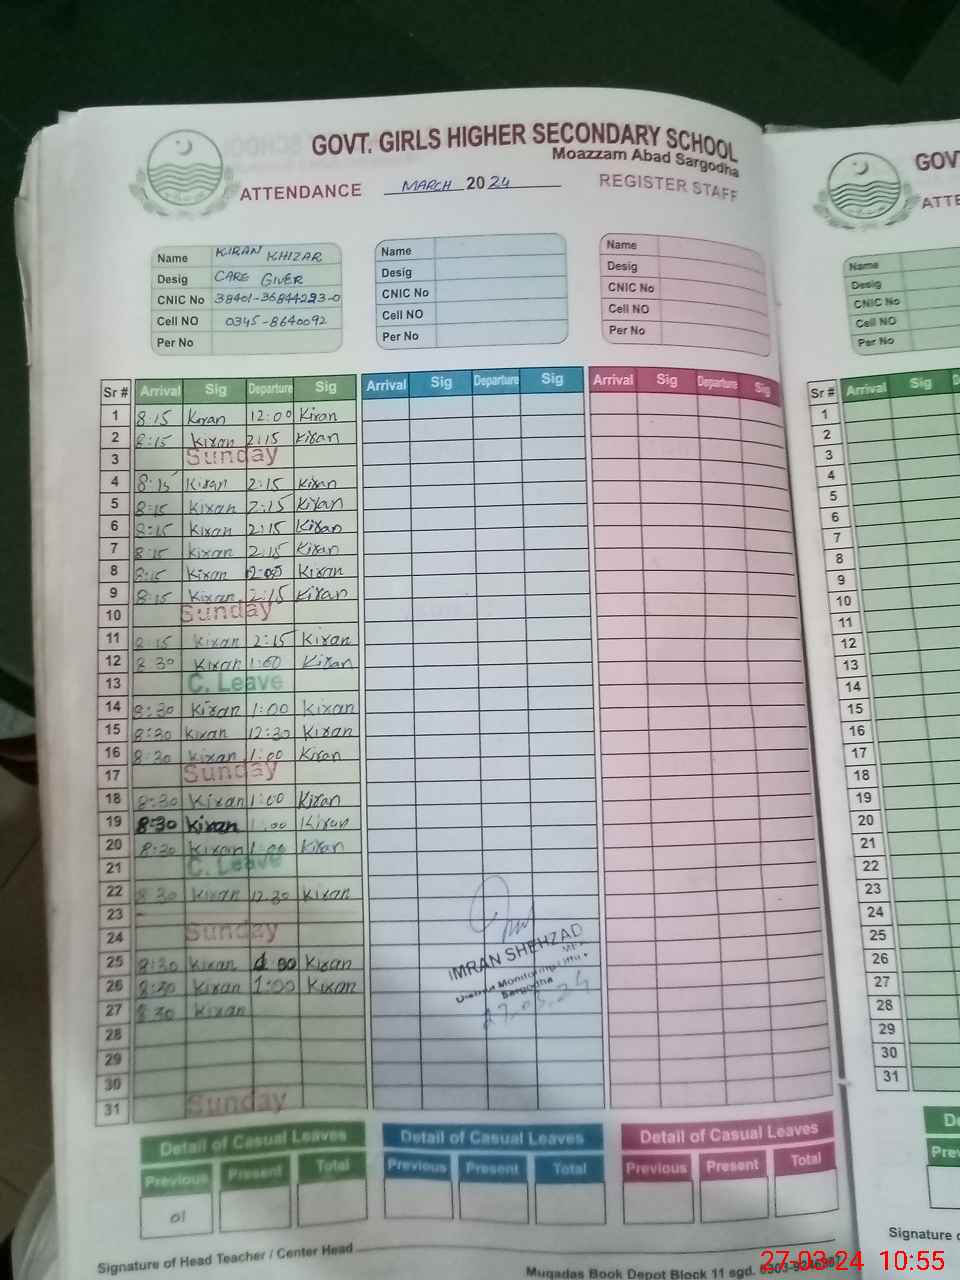 GOVT. GIRLS HIGHER SECONDARY SCHOOL
Moazzam Abad Sargodha
ATTENDANCE MARCH 2024 REGISTER STAFF
Name KIRAN KHIZAR
Desig CARE GIVER
CNIC No 38401-36844293-0
Cell NO 0345-8640092
Per No
Name
Desig
CNIC No
Cell NO
Per No
Name
Desig
CNIC No
Cell NO
Per No
Sr # Arrival Sig Departure Sig Arrival Sig Departure Sig Arrival Sig Departure Sig
1 8:15 Kiran 12:00 Kiran
2 8:15 Kiran 2:15 Kiran
3 Sunday
4 8:15 Kiran 2:15 Kiran
5 8:15 Kiran 2:15 Kiran
6 8:15 Kiran 2:15 Kiran
7 8:15 Kiran 2:15 Kiran
8 8:15 Kiran Kiran
9 8:15 Kiran 2:15 Kiran
10 Sunday
11 8:15 Kiran 2:15 Kiran
12 8:30 Kiran 1:00 Kiran
13 C. Leave
14 8:30 Kiran 1:00 Kiran
15 8:30 Kiran 12:30 Kiran
16 8:30 Kiran 1:00 Kiran
17 Sunday
18 8:30 Kiran 1:00 Kiran
19 8:30 Kiran 1:00 Kiran
20 8:30 Kiran 1:00 Kiran
21 C. Leave
22 8:30 Kiran 12:30 Kiran
23
24 Sunday
25 8:30 Kiran 1:00 Kiran
26 8:30 Kiran 1:00 Kiran
27 8:30 Kiran
28
29
30
31 Sunday
IMRAN SHEHZAD
Sargodha
27.03.24
Detail of Casual Leaves Detail of Casual Leaves Detail of Casual Leaves
Previous Present Total Previous Present Total Previous Present Total
01
Signature of Head Teacher / Center Head
Muqadas Book Depot Block 11 sgd.
GOV
ATTE
Name
Desig
CNIC No
Cell NO
Per No
Sr # Arrival Sig D
1
2
3
4
5
6
7
8
9
10
11
12
13
14
15
16
17
18
19
20
21
22
23
24
25
26
27
28
29
30
31
De
Prev
Signature o
27-03-24 10:55